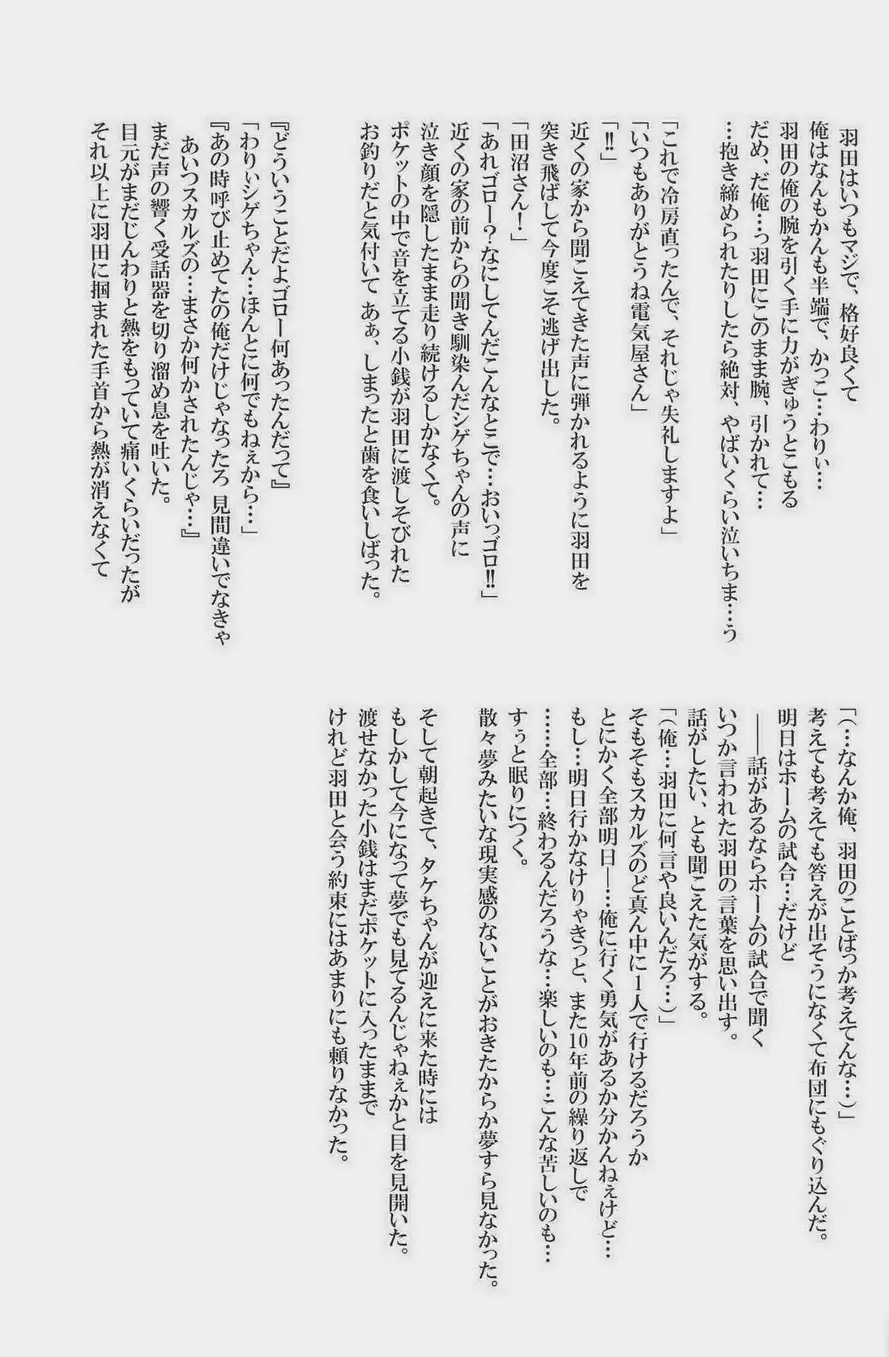 羽田はいつもマジで、格好良くて
俺はなんもかんも半端で、かっこ…わりぃ…
羽田の俺の腕を引く手に力がぎゅうとこもる
だめ、だ俺…っ羽田にこのまま腕、引かれて…
…抱き締められたりしたら絶対、やばいくらい泣いちま…う
「これで冷房直ったんで、それじゃ失礼しますよ」
「いつもありがとうね電気屋さん」
「!!」
近くの家から聞こえてきた声に弾かれるように羽田を
突き飛ばして今度こそ逃げ出した。
「田沼さん！」
「あれゴロー？なにしてんだこんなとこで…おいっゴロ!!」
近くの家の前からの聞き馴染んだシゲちゃんの声に
泣き顔を隠したまま走り続けるしかなくて。
ポケットの中で音を立てる小銭が羽田に渡しそびれた
お釣りだと気付いて あぁ、しまったと歯を食いしばった。
『どういうことだよゴロー何あったんだって』
「わりぃシゲちゃん…ほんとに何でもねぇから…」
『あの時呼び止めてたの俺だけじゃなったろ 見間違いでなきゃ
あいつスカルズの…まさか何かされたんじゃ…』
まだ声の響く受話器を切り溜め息を吐いた。
目元がまだじんわりと熱をもっていて痛いくらいだったが
それ以上に羽田に掴まれた手首から熱が消えなくて
「（…なんか俺、羽田のことばっか考えてんな…）」
考えても考えても答えが出そうになくて布団にもぐり込んだ。
明日はホームの試合…だけど
――話があるならホームの試合で聞く
いつか言われた羽田の言葉を思い出す。
話がしたい、とも聞こえた気がする。
「（俺…羽田に何言や良いんだろ…）」
そもそもスカルズのど真ん中に1人で行けるだろうか
とにかく全部明日―…俺に行く勇気があるか分かんねぇけど…
もし…明日行かなけりゃきっと、また10年前の繰り返しで
……全部…終わるんだろうな…楽しいのも…こんな苦しいのも…
すぅと眠りにつく。
散々夢みたいな現実感のないことがおきたからか夢すら見なかった。
そして朝起きて、タケちゃんが迎えに来た時には
もしかして今になって夢でも見てるんじゃねぇかと目を見開いた。
渡せなかった小銭はまだポケットに入ったままで
けれど羽田と会う約束にはあまりにも頼りなかった。